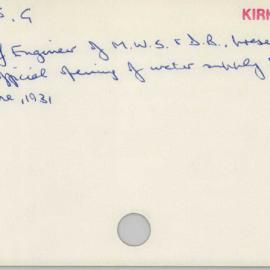 S. G
KIRK
f Engineer of M.W.S. & D.B., prese
official opening of water supply
ne, 1931